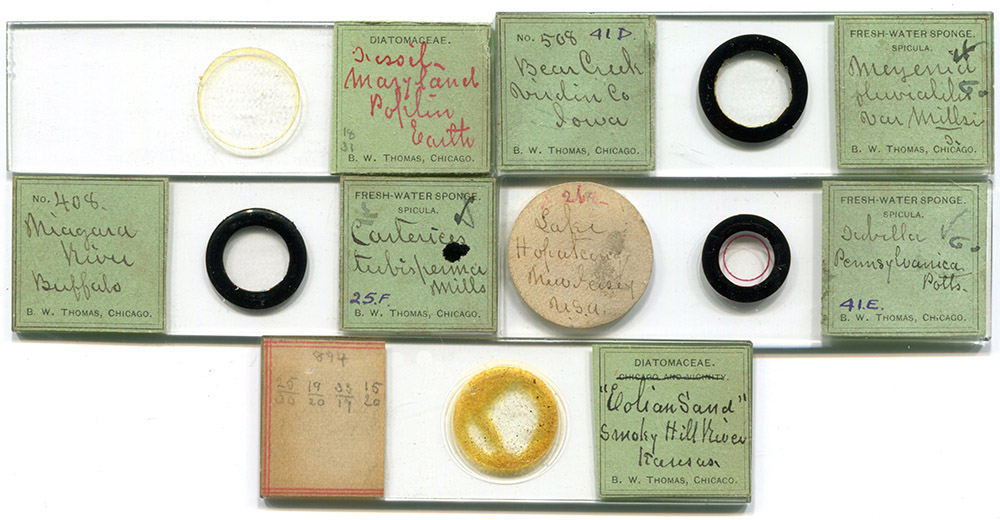 DIATOMACEAE.
Fossil
Maryland
Polilin
Earth
18
31
B. W. THOMAS, CHICAGO.
No. 508 41D.
Bear Creek
Co
Iowa
B. W. THOMAS, CHICAGO.
FRESH-WATER SPONGE.
SPICULA.
Meyenia
fluviatilis
Var Millsi
B. W. THOMAS, CHICAGO.
No. 408.
Niagara
River
Buffalo
B. W. THOMAS, CHICAGO.
FRESH-WATER SPONGE.
SPICULA.
Carterius
tubisperma
Mills
25.F.
B. W. THOMAS, CHICAGO.
Lake
Hopatcong
New Jersey
U.S.A.
FRESH-WATER SPONGE.
SPICULA.
Pennsylvanica
Potts.
41.E.
B. W. THOMAS, CHICAGO.
897
25 19 33 15
30 20 19 20
DIATOMACEAE.
CHICAGO AND VICINITY.
"Eolian Sand"
Smoky Hill River
Kansas
B. W. THOMAS, CHICAGO.